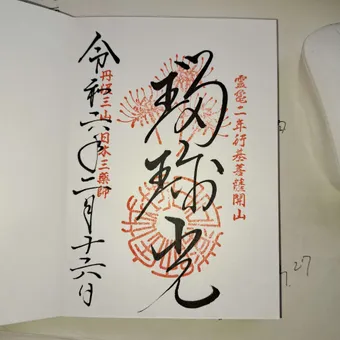 霊亀二年行基菩薩開山
瑠璃光
令和六年二月十六日
丹 三山 日本三薬師
27